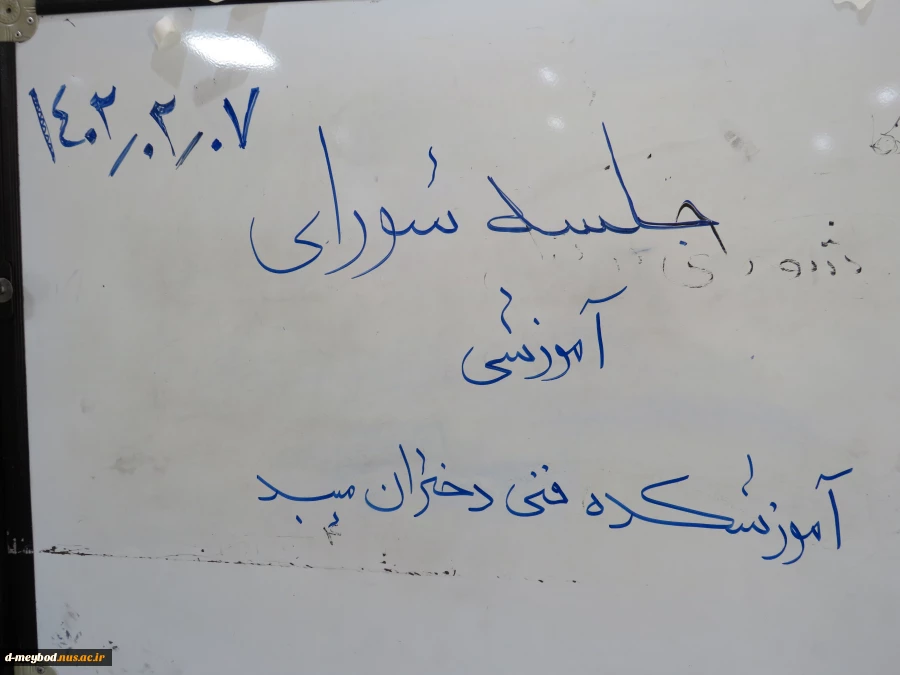 ۱۴۰۲/۰۲/۰۷
جلسه شورای
آموزشی
آموزشکده فنی دختران میبد
d-meybod.nus.ac.ir